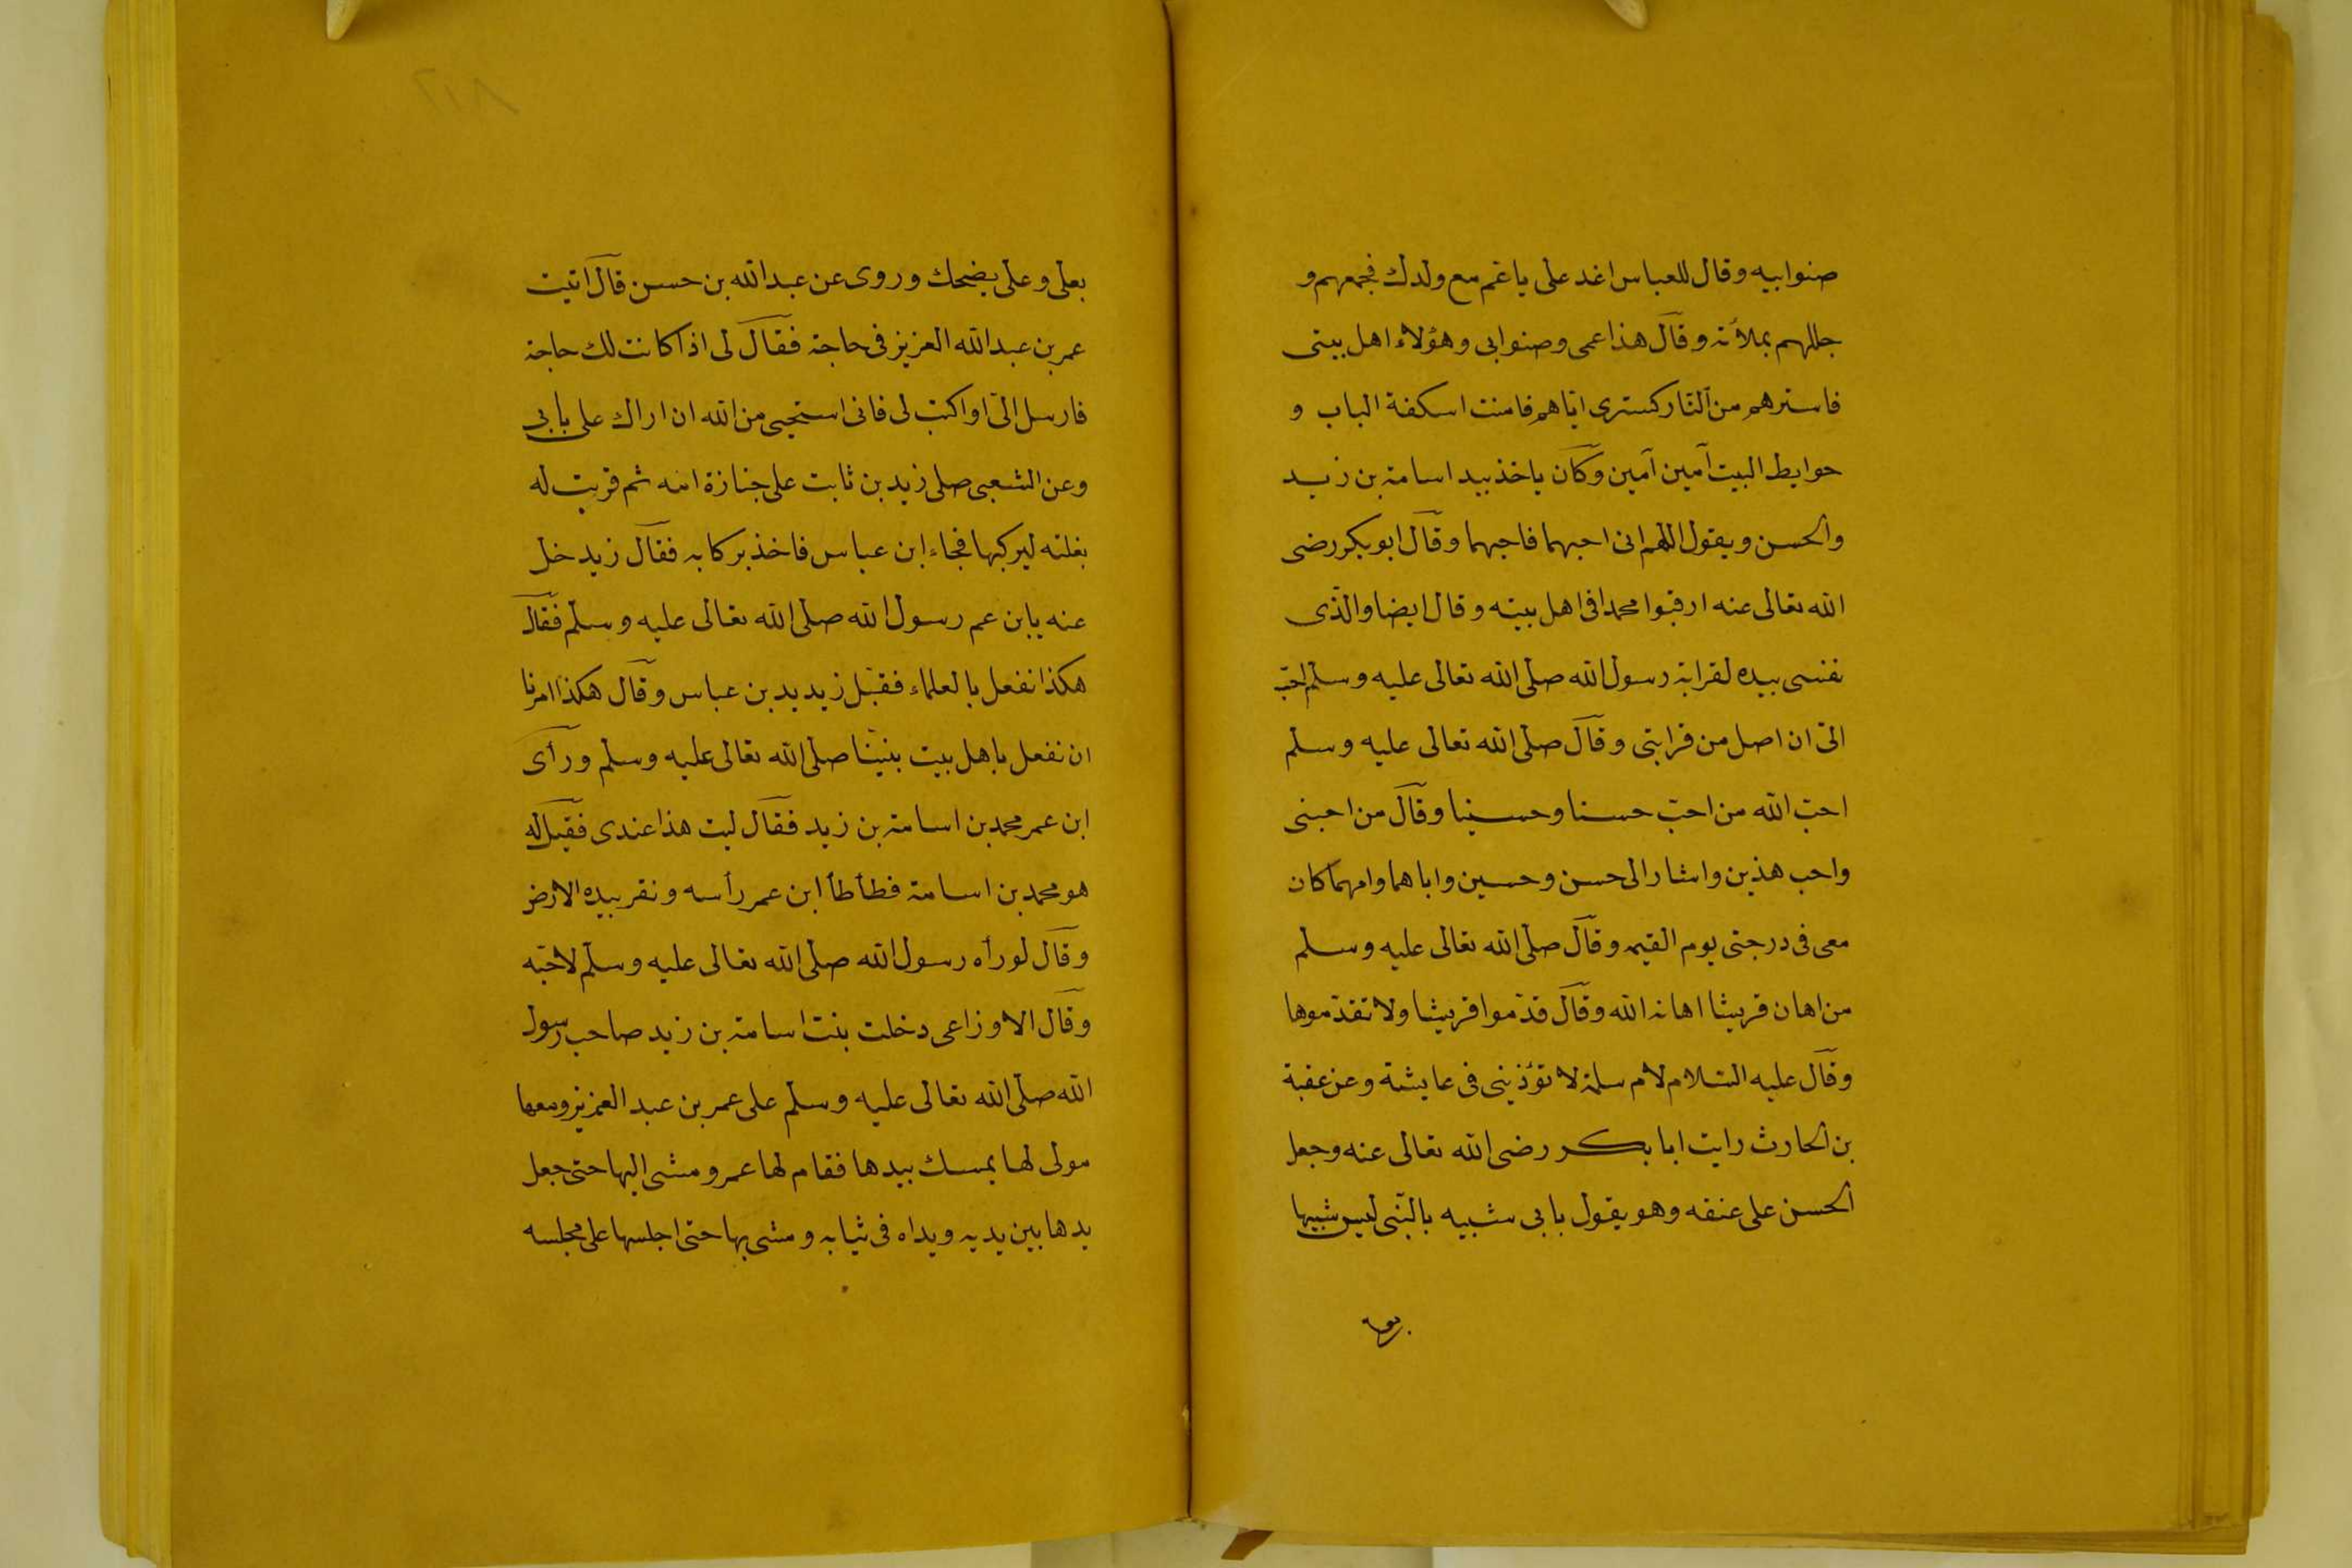 صنوابيه وقال للعباس اغد على ياعم مع ولدك فجمعهم و
جللهم بملأته وقال هذا عمى وصنوابى وهؤلاء اهل بيتى
فاسترهم من النار كسترى اياهم فامنت اسكفة الباب و
حوايط البيت آمين آمين وكان ياخذ بيد اسامة بن زيد
والحسن ويقول اللهم انى احبهما فاحبهما وقال ابوبكر رضى
الله تعالى عنه ارقبوا محمدا فى اهل بيته وقال ايضا والذى
نفسى بيده لقرابة رسول الله صلى الله تعالى عليه وسلم احب
الى ان اصل من قرابتى وقال صلى الله تعالى عليه وسلم
احب الله من احب حسنا وحسينا وقال من احبنى
واحب هذين واشار الى حسن وحسين واباهما وامهما كان
معى فى درجتى يوم القيمه وقال صلى الله تعالى عليه وسلم
من اهان قريشا اهانه الله وقال قدموا قريشا ولا تقدموها
وقال عليه السلام لام سلمة لا تؤذينى فى عايشة وعن عقبة
بن الحارث رايت ابا بكر رضى الله تعالى عنه وجعل
الحسن على عنقه وهو يقول بابى شبيه بالنبى ليس شبيها
بعلى وعلى يضحك وروى عن عبدالله بن حسن قال اتيت
عمر بن عبدالله العزيز فى حاجة فقال لى اذا كانت لك حاجة
فارسل الى او اكتب لى فانى استحيى من الله ان اراك على بابى
وعن الشعبى صلى زيد بن ثابت على جنازة امه ثم قربت له
بغلته ليركبها فجاء ابن عباس فاخذ بركابه فقال زيد خل
عنه يابن عم رسول الله صلى الله تعالى عليه وسلم فقال
هكذا نفعل بالعلماء فقبل زيد يد بن عباس وقال هكذا امرنا
ان نفعل باهل بيت نبينا صلى الله تعالى عليه وسلم ورأى
ابن عمر محمد بن اسامة بن زيد فقال ليت هذا عندى فقيل له
هو محمد بن اسامة فطأطأ ابن عمر رأسه ونقر بيده الارض
وقال لو رأه رسول الله صلى الله تعالى عليه وسلم لاحبه
وقال الاوزاعى دخلت بنت اسامة بن زيد صاحب رسول
الله صلى الله تعالى عليه وسلم على عمر بن عبد العزيز ومعها
مولى لها يمسك بيدها فقام لها عمر ومشى اليها حتى جعل
يدها بين يديه ويداه فى ثيابه ومشى بها حتى اجلسها على مجلسه